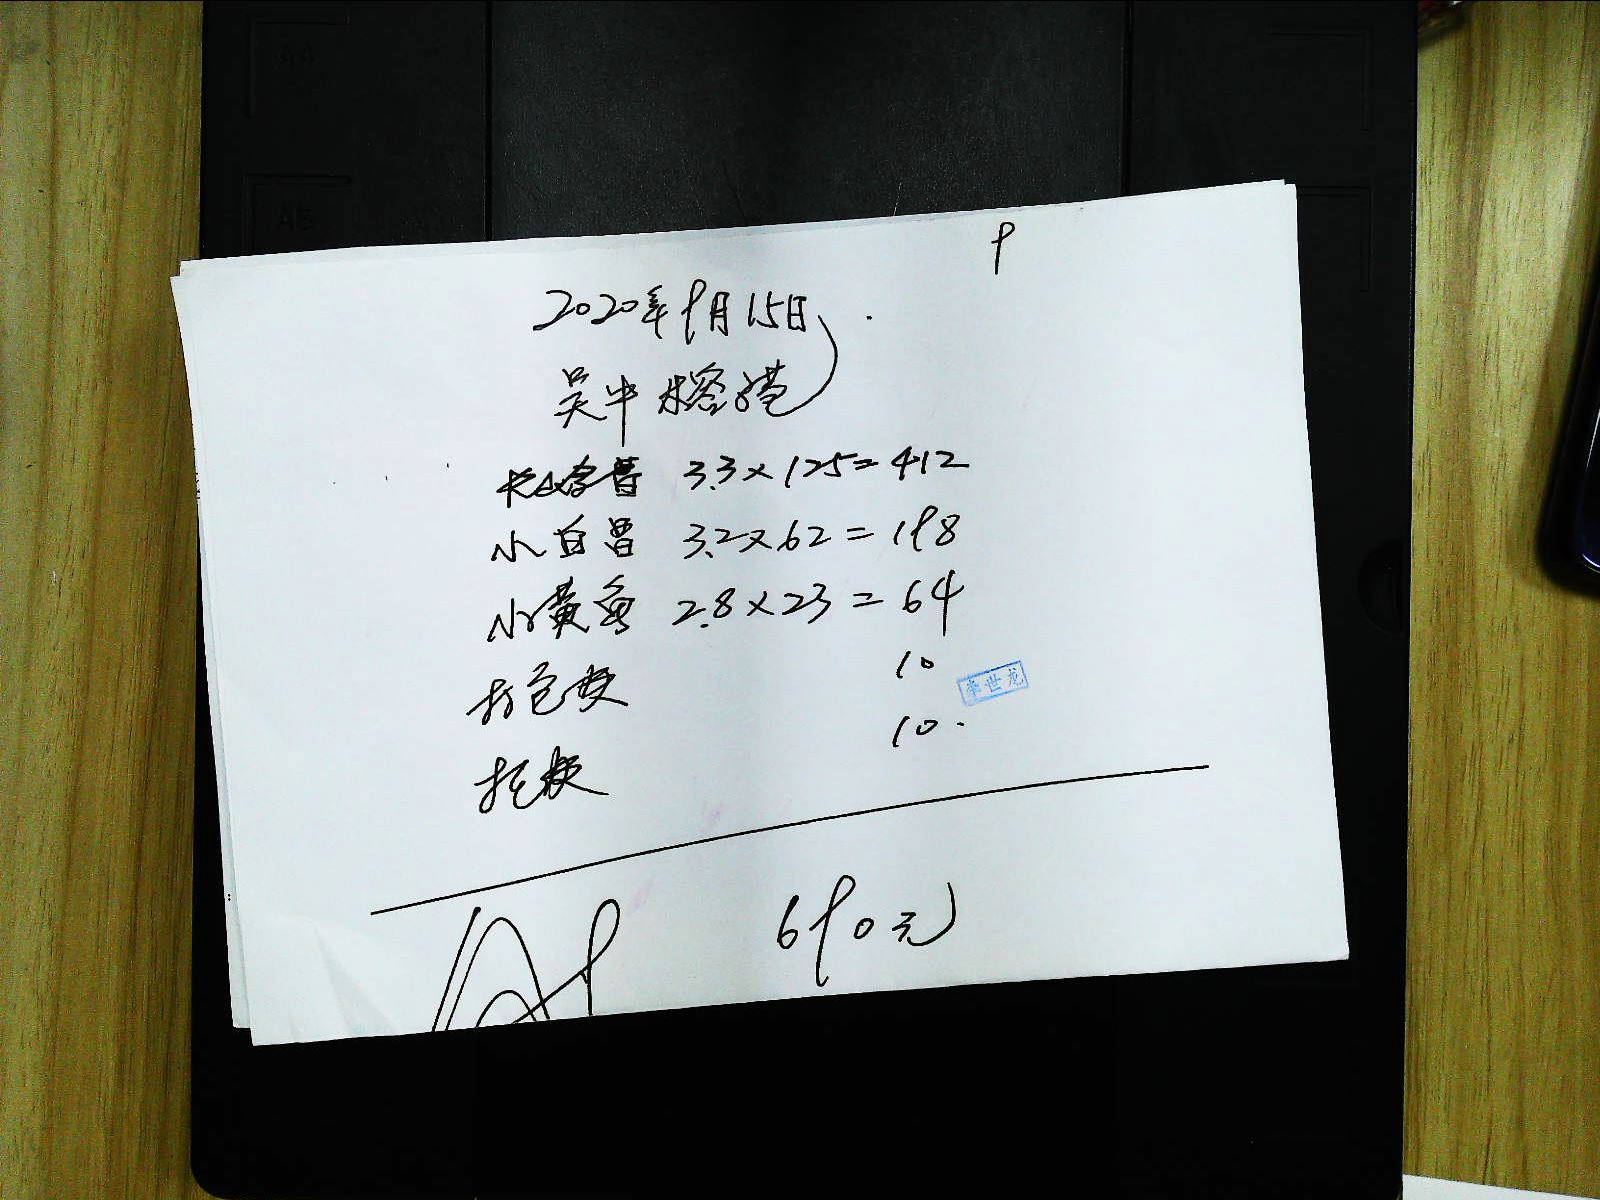 9
2020年9月15日
吴中
3.3×125=412
小白 3.2×62=198
小黄鱼 2.8×23=64
打包费 10
李世龙
托费 10.
690元